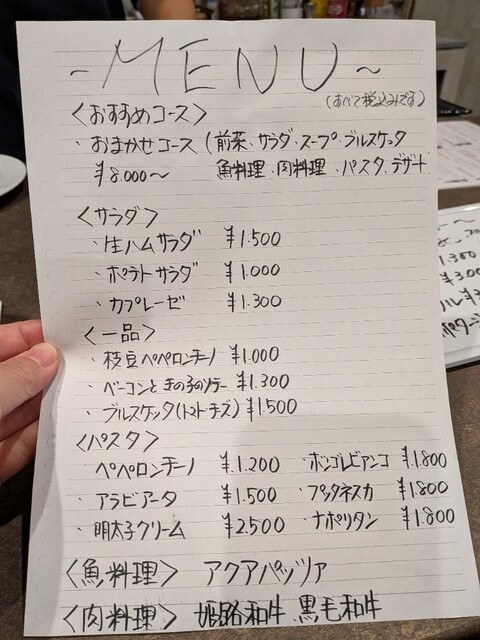 ~MENU~
(すべて税込みです)
<おすすめコース>
・おまかせコース (前菜、サラダ・スープ・ブルスケッタ
¥8.000~ 魚料理、肉料理、パスタ、デザート
<サラダ>
・生ハムサラダ ¥1.500
・ポテトサラダ ¥1.000
・カプレーゼ ¥1.300
<一品>
・枝豆ペペロンチーノ ¥1.000
・ベーコンときのこのソテー ¥1.300
・ブルスケッタ(トマト・チーズ) ¥1.500
<パスタ>
ペペロンチーノ ¥1.200 ・ボンゴレビアンコ ¥1.800
・アラビアータ ¥1.500 ・プッタネスカ ¥1.800
・明太子クリーム ¥2.500 ・ナポリタン ¥1.800
<魚料理> アクアパッツァ
<肉料理> 姫路和牛 黒毛和牛